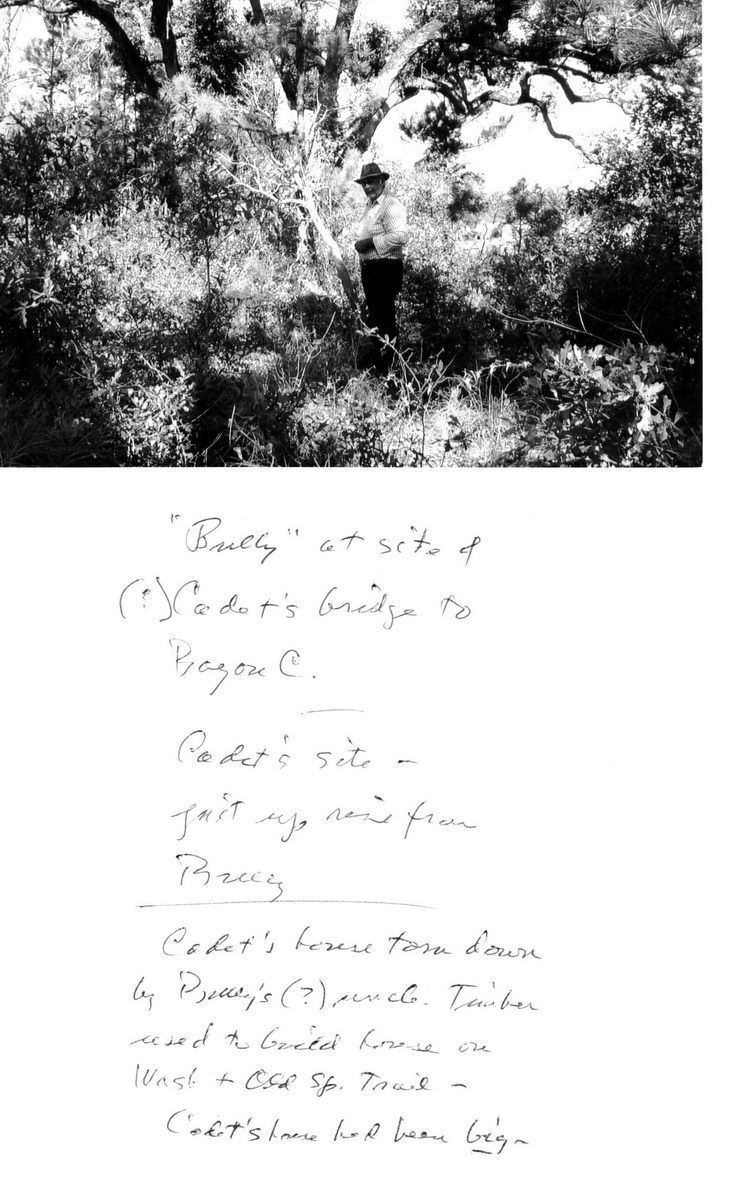 "Bully" at site of
(?) Cadet's bridge to
Bayou C.
Cadet's site –
just up rise from
Bully
Cadet's house torn down
by Bully's (?) uncle. Timber
used to build house on
Wash + Old Sp. Trail –
Cadet's house had been big –